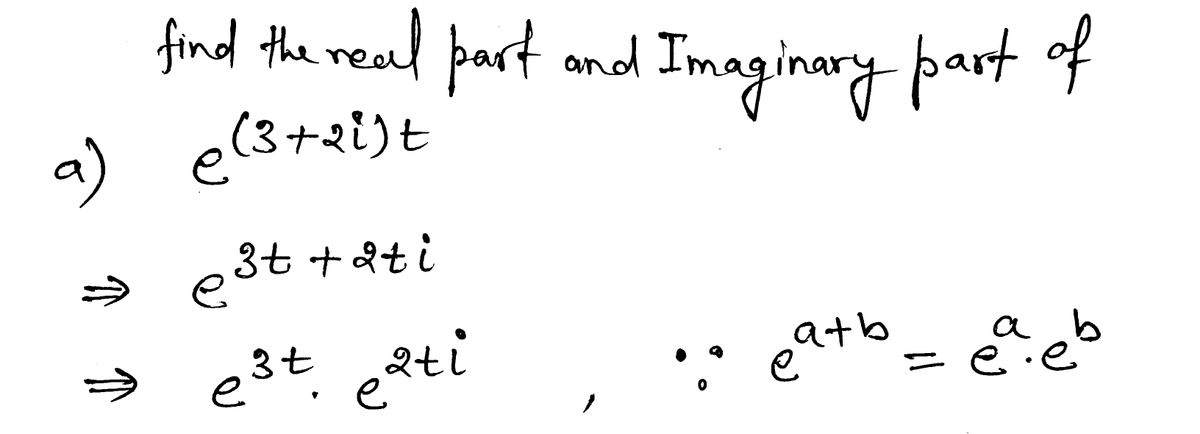 find the real part and Imaginary part of
a) e^(3+2i)t
⇒ e^3t+2ti
⇒ e^3t . e^2ti , ∵ e^a+b = e^a.e^b